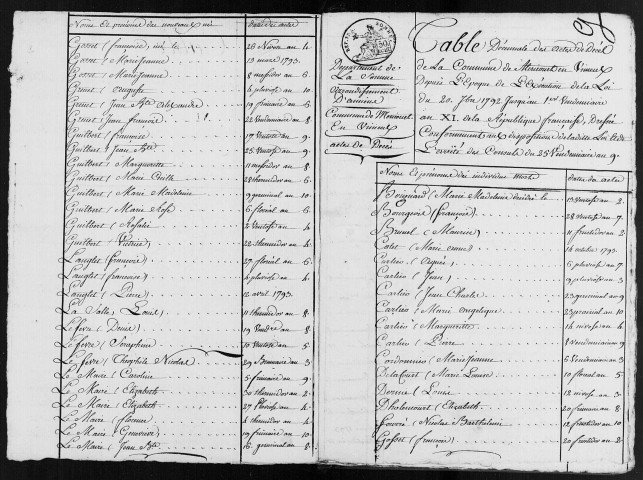 Noms et prénoms des nouveaux nés Dates des actes
Gorret (françoise) né le 26 Nivose an 4.
Gorret (Marie Jeanne 13 mars 1793.
Gorret (Marie Jeanne 8 messidor an 8
Gruet (Auguste 4 pluviose an 10
Gruet (Jean Bte Alexandre 19 frimaire an 6
Gruet (Jean françois) 22 Vendemiaire an 8
Guilbert (françoise 17 Ventose an 9
Guilbert (Jean Bte) 25 Ventose an 9.
Guilbert (Marguerite 11 messidor an 8
Guilbert (Marie 28 thermidor an 6
Guilbert (Marie Madeleine 9 germinal an 10
Guilbert (Marie Rose 6 floreal an 6
Guilbert (Rosalie 2 Ventose an 4
Guilbert (Victoire 22 thermidor an 4
Langlet (françois) 27 floreal an 5
Langlet (françoise) 4 pluviose an 4
Langlet (Pierre) 12 avril 1793
La Salle (Louis) 11 thermidor an 8
Lefevre (Denise) 19 an 8
Lefevre (Seraphine 10 Ventose an 5
Le fevre (Theophile Nicolas) 29 Brumaire an 3
Le Maire (Caroline 5 frimaire an 9
Le Maire (Elizabeth 30 thermidor an 2
Le Maire (Elizabeth 27 Pluviose an 4
Le Maire ( 4 thermidor an 4
Le Maire (Genevieve 19 frimaire an 10
Le Maire (Jean Bte 16 germinal an 8
Département de
La Somme
Arrondissement
D'amiens
Commune de
En Vimeux
actes de Décès
Table Décennale des actes de Décès
de La Commune de en Vimeux
Depuis L'Epoque de L'Exécution de la Loi
du 20. 7bre 1792 Jusqu'au 1er Vendemiaire
an XI. de la République française, Dressée
Conformement aux dispositions de ladite Loi et de
L'arrêté des Consuls du 25 Vendemiaire an 9.
Noms et prénoms des individus morts dates des actes
(Marie Madeleine décédée le 13 Ventose an 2.
Bourgeois (françois) 28 Ventose an 7.
Brunel (Maurice) 11 fructidor an 2
(Marie anne) 16 octobre 1793.
Carlier ( 5 pluviose an 7
Carlier (Jean) 9 pluviose an 3
Carlier (Jean Charles 23 germinal an 9
Carlier (Marie Angelique 23 germinal an 10
Carlier (Marguerite 14 nivose an 4
Carlier (Pierre 1 Vendemiaire an 9
Cordonnier (Marie Jeanne 6 Vendemiaire an 3
Delacourt (Marie Louise 10 floreal an 5
(Louise 12 nivose an 3
(Elizabeth 20 frimaire an 8
(Nicolas Barthelemi 12 fructidor an 10
(françois) 20 fructidor an 2